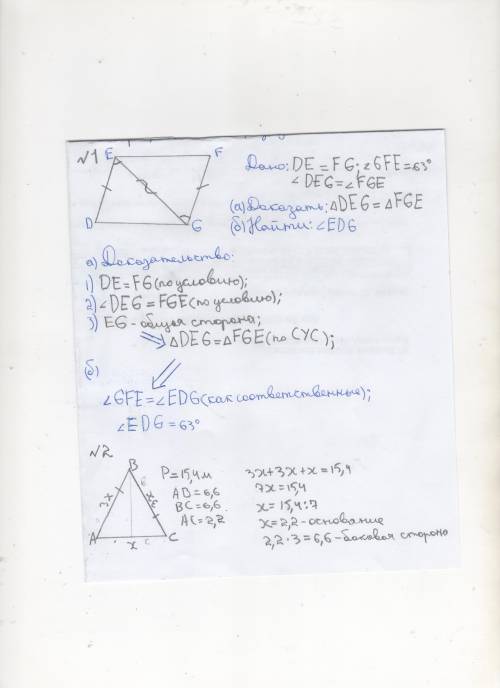 √1
E F
D G
Дано: DE = FG; ∠GFE = 63°
∠DEG = ∠FGE
(а) Доказать: △DEG = △FGE
(б) Найти: ∠EDG
а) Доказательство:
1) DE = FG (по условию);
2) ∠DEG = FGE (по условию);
3) EG - общая сторона;
⇒ △DEG = △FGE (по СУС);
(б)
∠GFE = ∠EDG (как соответственные);
∠EDG = 63°
√2
B
3x 3x
A x C
P = 15,4м
AD = 6,6
BC = 6,6
AC = 2,2
3x + 3x + x = 15,4
7x = 15,4
x = 15,4 : 7
x = 2,2 - основание
2,2 · 3 = 6,6 - боковая сторона